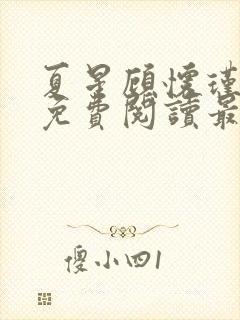 夏星顾懷瑾
免費閱讀最
傻小四1